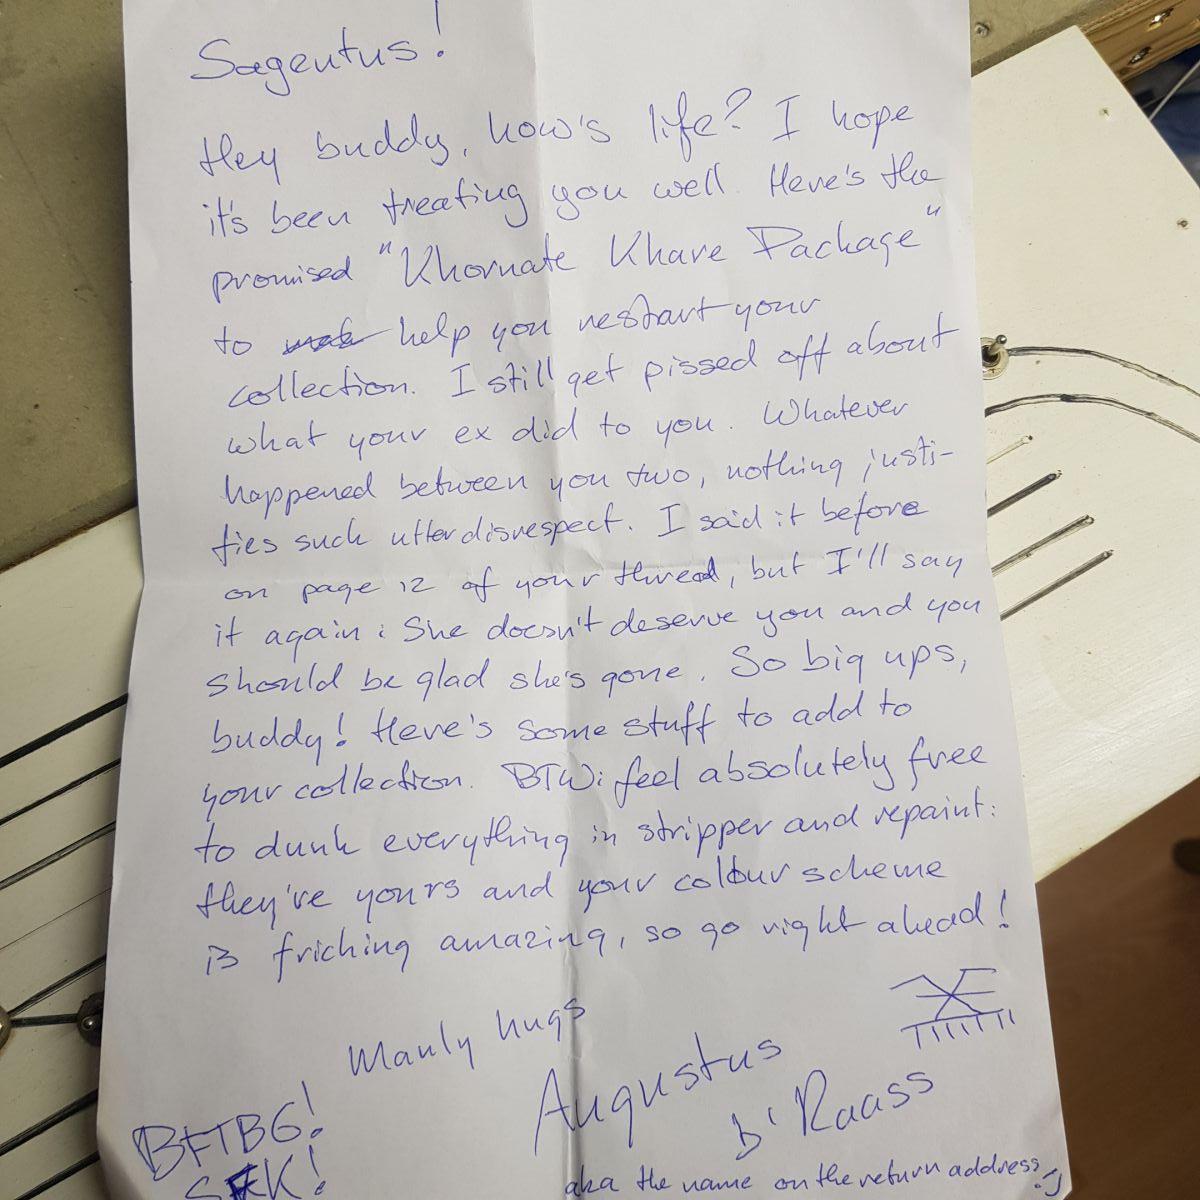 Sagentus!
Hey buddy, how's life? I hope
it's been treating you well. Here's the
promised "Khornate Khare Package"
to help you restart your
collection. I still get pissed off about
what your ex did to you. Whatever
happened between you two, nothing justi-
fies such utter disrespect. I said it before
on page 12 of your thread, but I'll say
it again: She doesn't deserve you and you
should be glad she's gone. So big ups,
buddy! Here's some stuff to add to
your collection. BTW: feel absolutely free
to dunk everything in stripper and repaint:
they're yours and your colour scheme
is fricking amazing, so go right ahead!
Manly hugs
Augustus
b'Raass
BFTBG!
SFTK!
aka the name on the return address ;-)